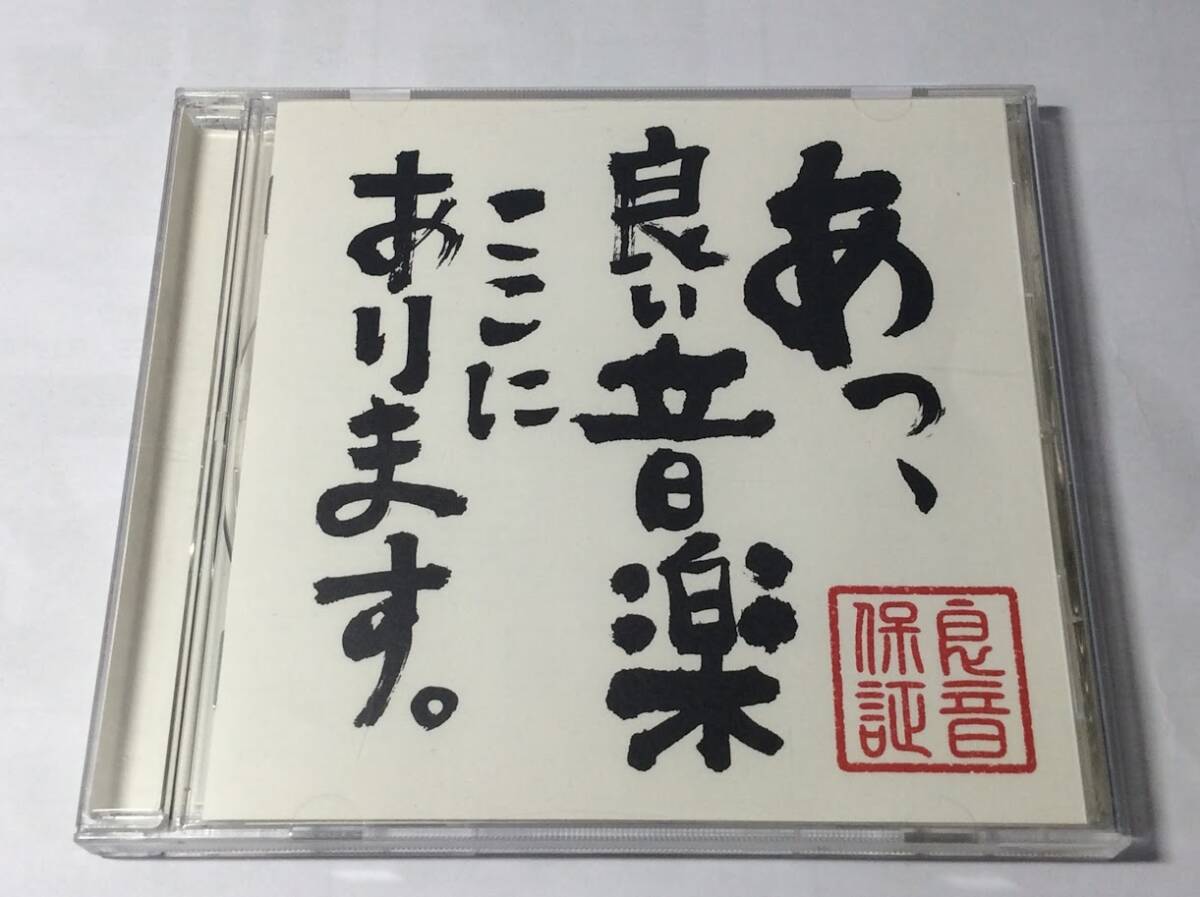 あっ、
良い音楽
ここに
あります。
良音
保証